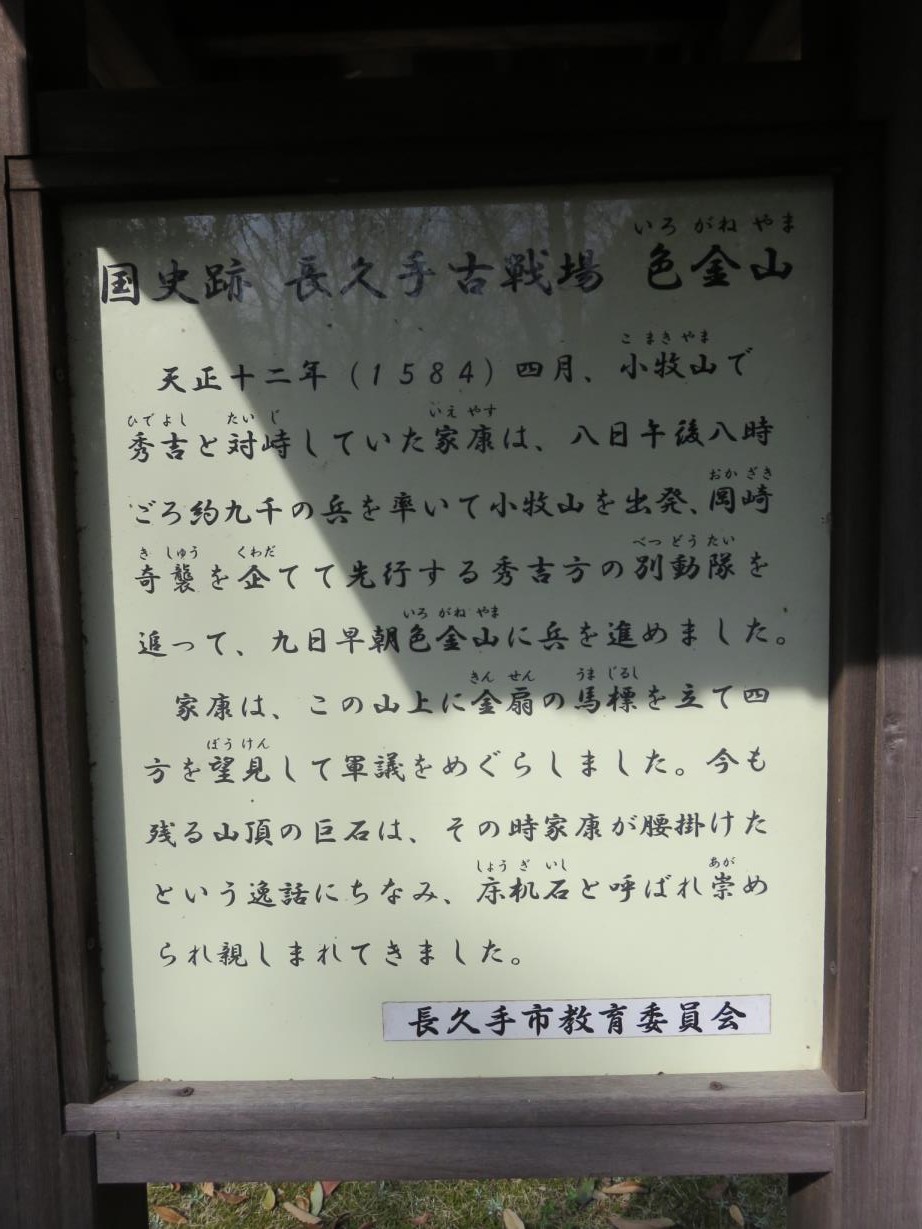 いろ がね やま
国史跡 長久手古戦場 色金山
こ まき やま
天正十二年（1584）四月、小牧山で
ひで よし たい じ いえ やす
秀吉と対峙していた家康は、八日午後八時
おか ざき
ごろ約九千の兵を率いて小牧山を出発、岡崎
き しゅう くわだ べつ どう たい
奇襲を企てて先行する秀吉方の別動隊を
いろ がね やま
追って、九日早朝色金山に兵を進めました。
きん せん うま じるし
家康は、この山上に金扇の馬標を立て四
ぼう けん
方を望見して軍議をめぐらしました。今も
残る山頂の巨石は、その時家康が腰掛けた
しょう ぎ いし あが
という逸話にちなみ、床机石と呼ばれ崇め
られ親しまれてきました。
長久手市教育委員会